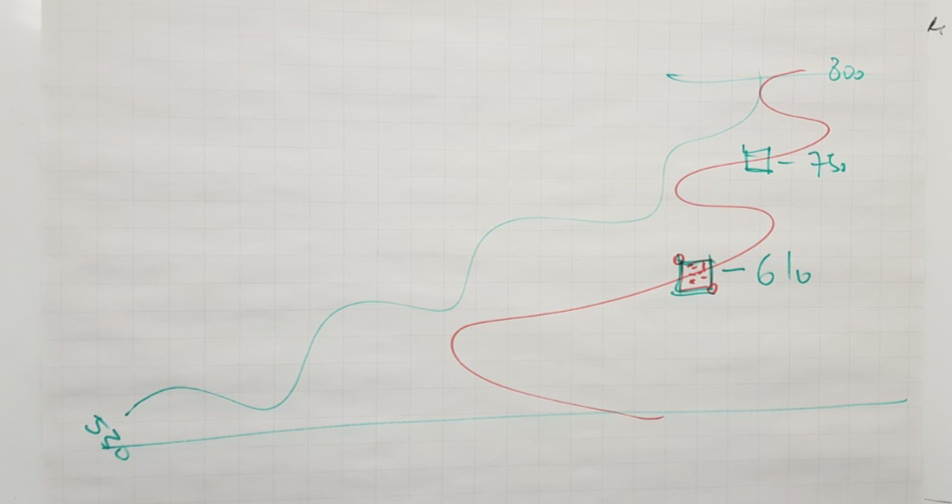 800
- 750
- 610
530